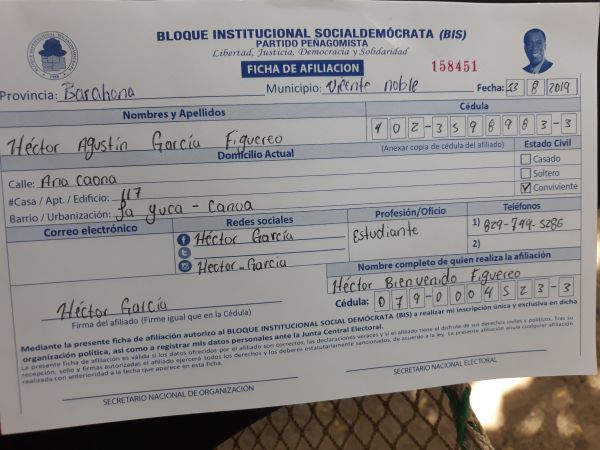 BLOQUE INSTITUCIONAL SOCIALDEMÓCRATA (BIS)
PARTIDO PEÑAGOMISTA
Libertad, Justicia, Democracia y Solidaridad
FICHA DE AFILIACION
158451
Provincia: Barahona
Municipio: Vicente noble
Fecha: 23 8 2019
Nombres y Apellidos
Héctor Agustín García Figuereo
Cédula
402-3598983-3
(Anexar copia de cédula del afiliado)
Domicilio Actual
Calle: Ana Caona
#Casa / Apt. / Edificio: 117
Barrio / Urbanización: La yuca - Canoa
Estado Civil
Casado
Soltero
Conviviente
Correo electrónico
Redes sociales
Héctor García
Hector-Garcia
Profesión/Oficio
Estudiante
Teléfonos
1) 829-799-5286
2)
Nombre completo de quien realiza la afiliación
Héctor Bienvenido Figuereo
Cédula: 079-0004523-3
Héctor García
Firma del afiliado (Firme igual que en la Cédula)
Mediante la presente ficha de afiliación autorizo al BLOQUE INSTITUCIONAL SOCIAL DEMÓCRATA (BIS) a realizar mi inscripción única y exclusiva en dicha
organización política, así como a registrar mis datos personales ante la Junta Central Electoral.
La presente ficha de afiliación es válida si los datos ofrecidos por el afiliado son correctos, las declaraciones veraces y si el afiliado tiene el disfrute de sus derechos civiles y políticos. Tras su
recepción, sello y firmas autorizadas el afiliado ejercerá todos los derechos y los deberes estatutariamente sancionados, de acuerdo a la ley. La presente afiliación anula cualquier afiliación
realizada con anterioridad a la fecha que aparece en esta ficha.
SECRETARIO NACIONAL DE ORGANIZACIÓN
SECRETARIO NACIONAL ELECTORAL